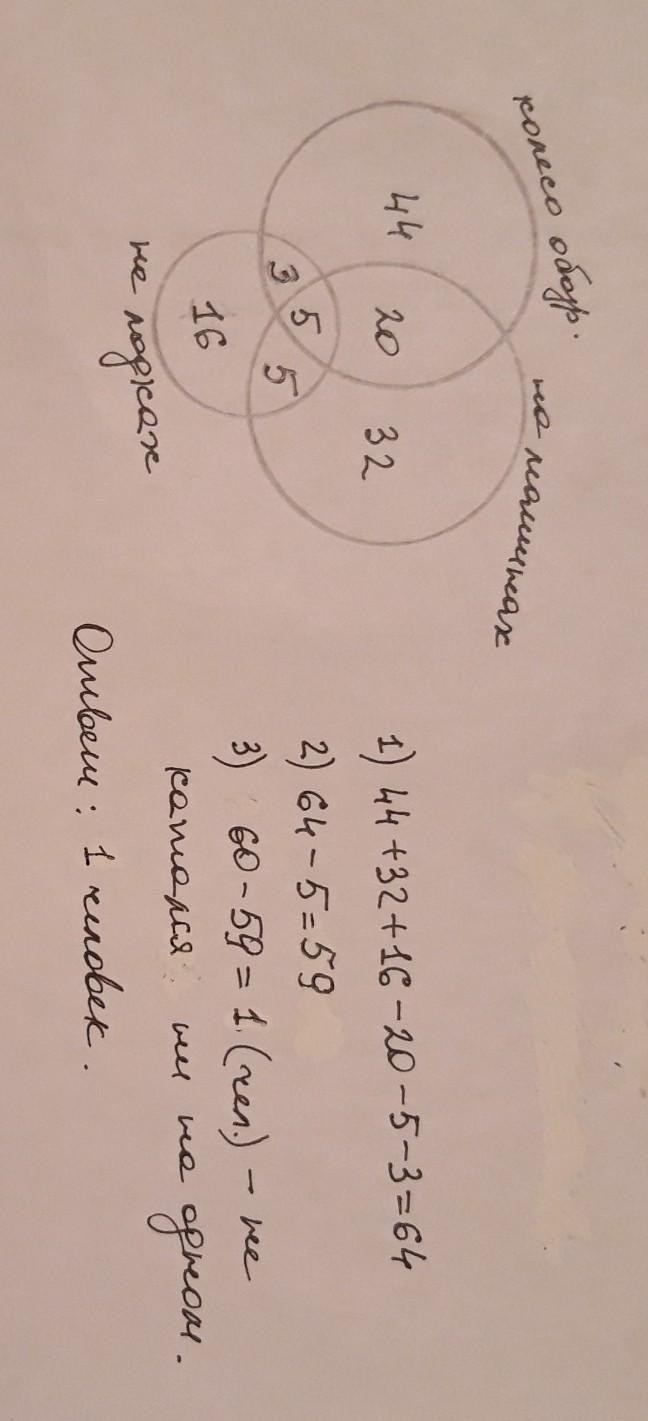 колесо обозр.
на машинках
44
20
32
3
5
5
16
на лодках
1) 44+32+16-20-5-3=64
2) 64-5=59
3) 60-59=1 (чел.) - не
катался ни на одном.
Ответ: 1 человек.